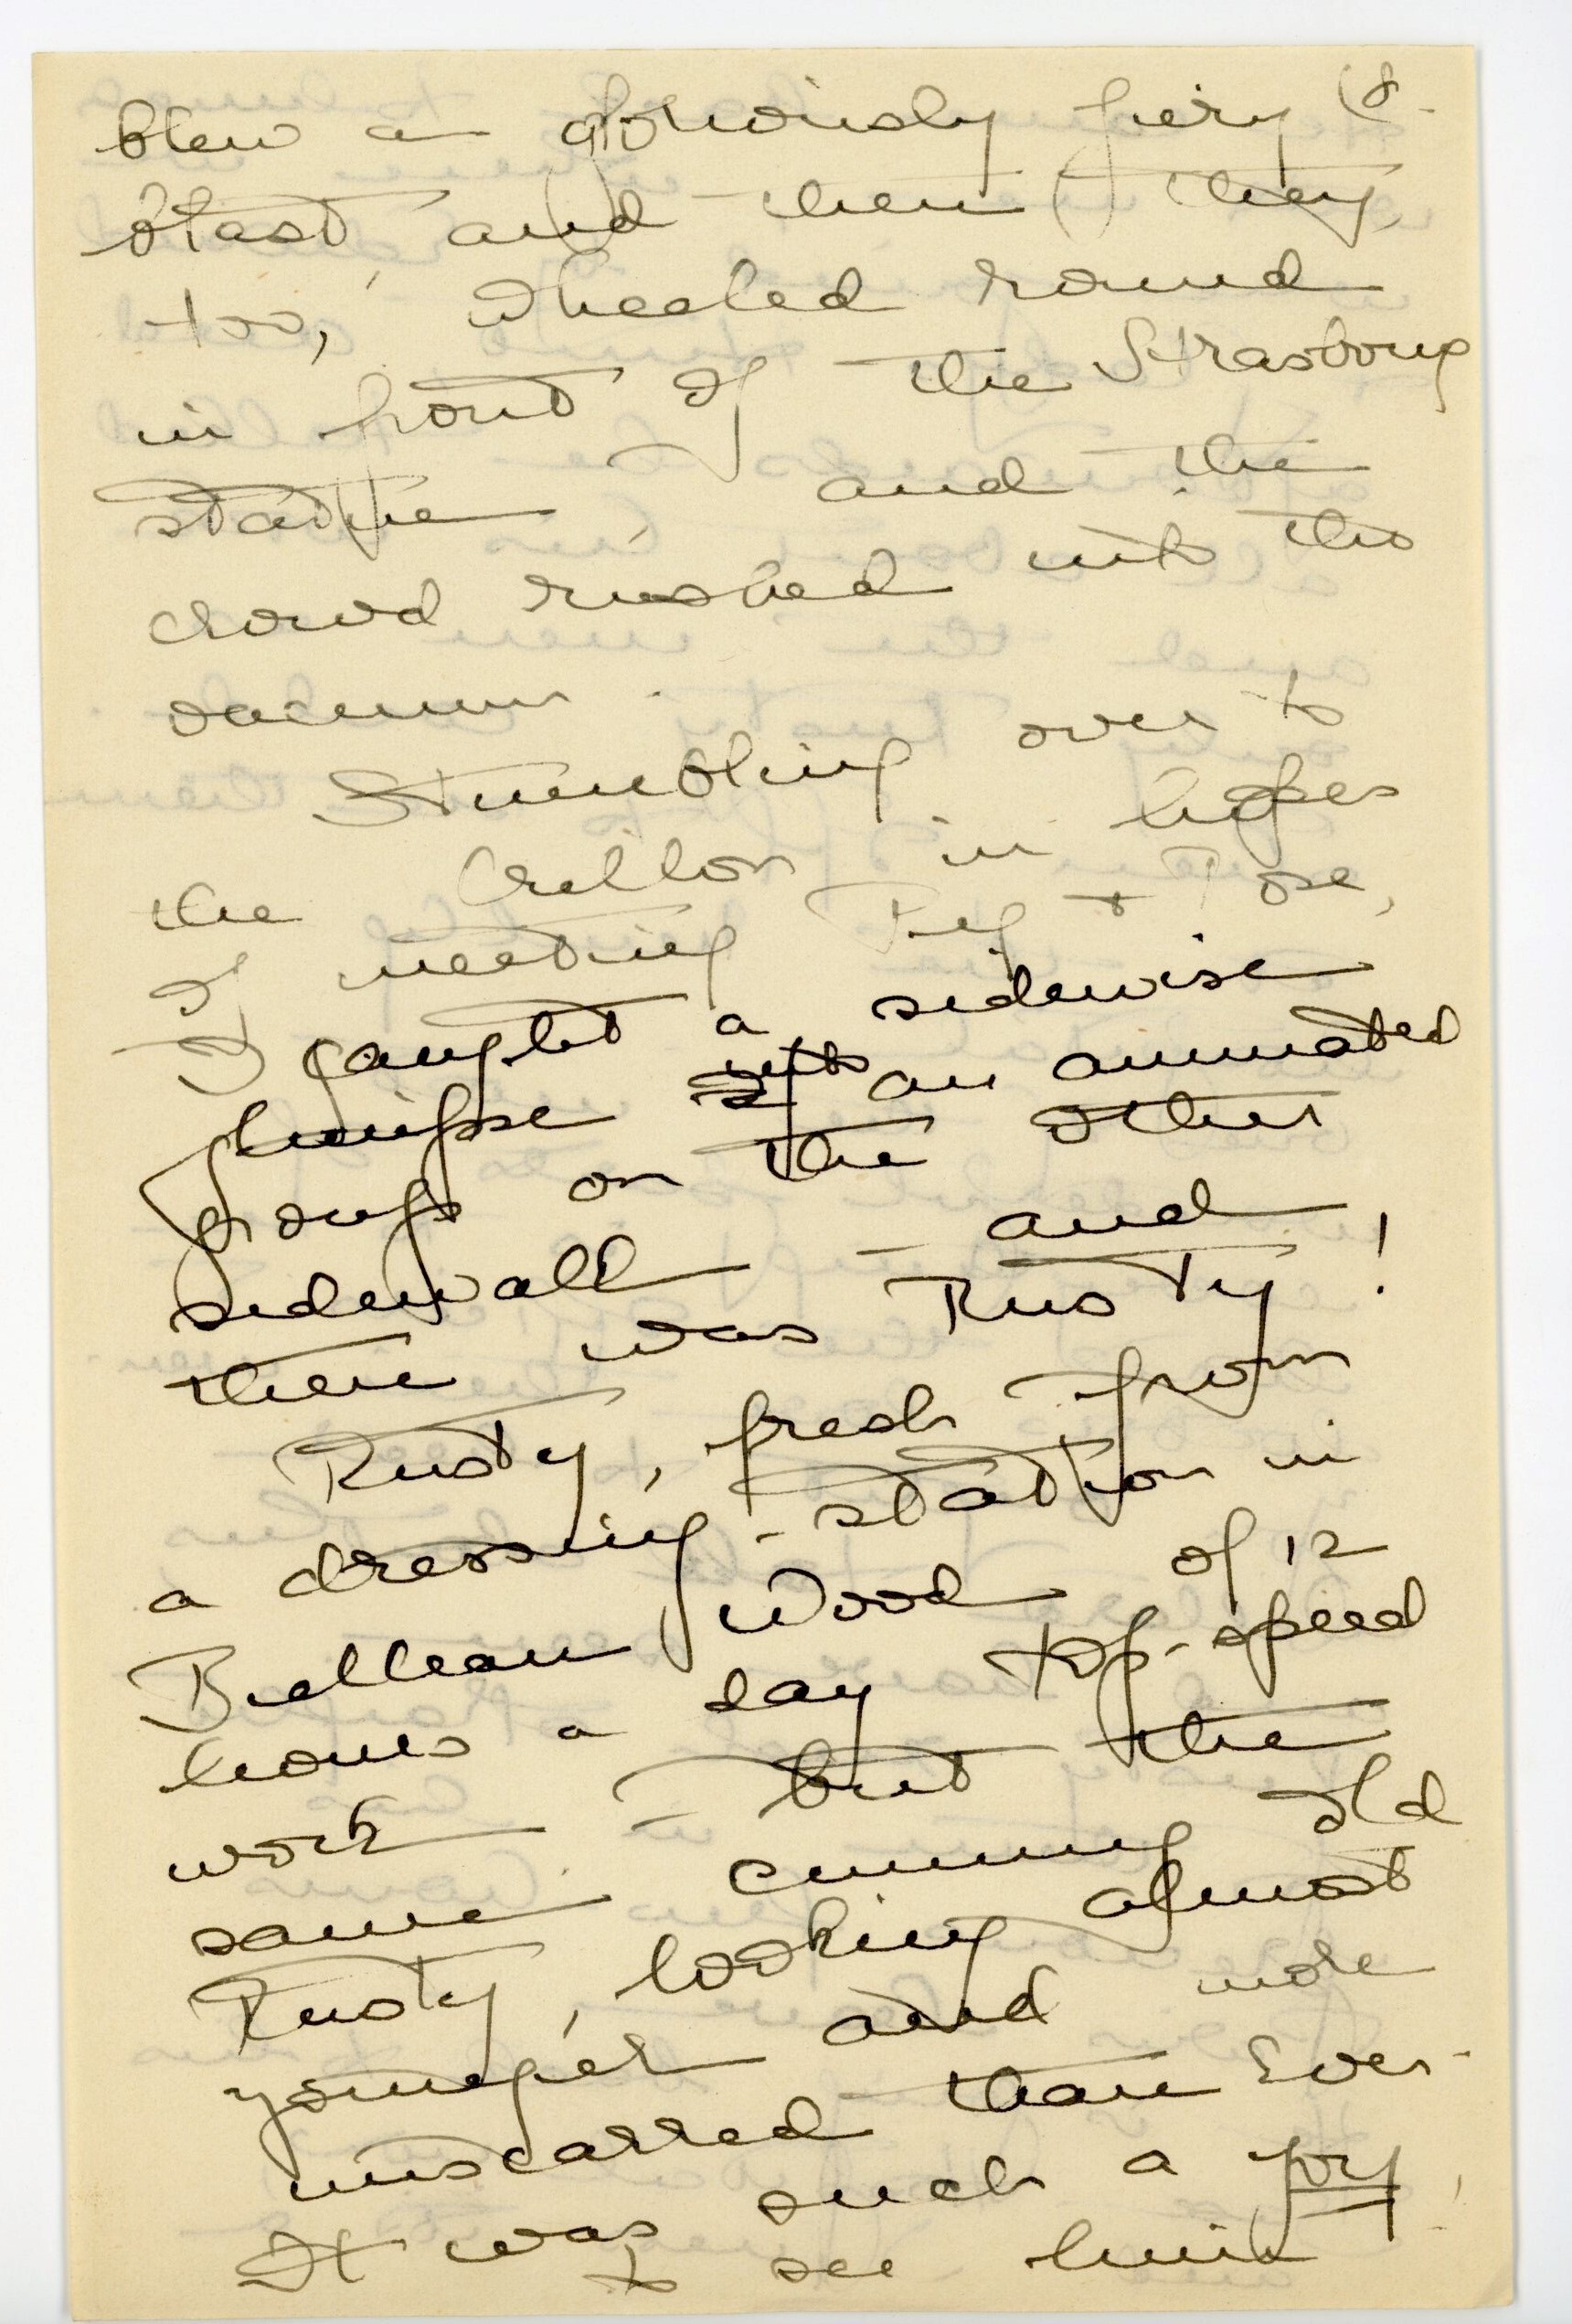 (8.
blew a gloriously fiery
blast, and then they,
too, wheeled round
in front of the Strasbourg
statue, and the
crowd rushed into the
vacuum.
Stumbling over to
the Crillon in hopes
of meeting Peg + Rose,
I caught a sidewise
glimpse into an animated
group on the other
sidewalk - and
there was Rusty!
Rusty, fresh from
a dressing-station in
Belleau Wood of 12
hours a day top-speed
work - but the
same cunning old
Rusty, looking almost
younger and more
unscarred than ever.
It was such a joy!
to see him